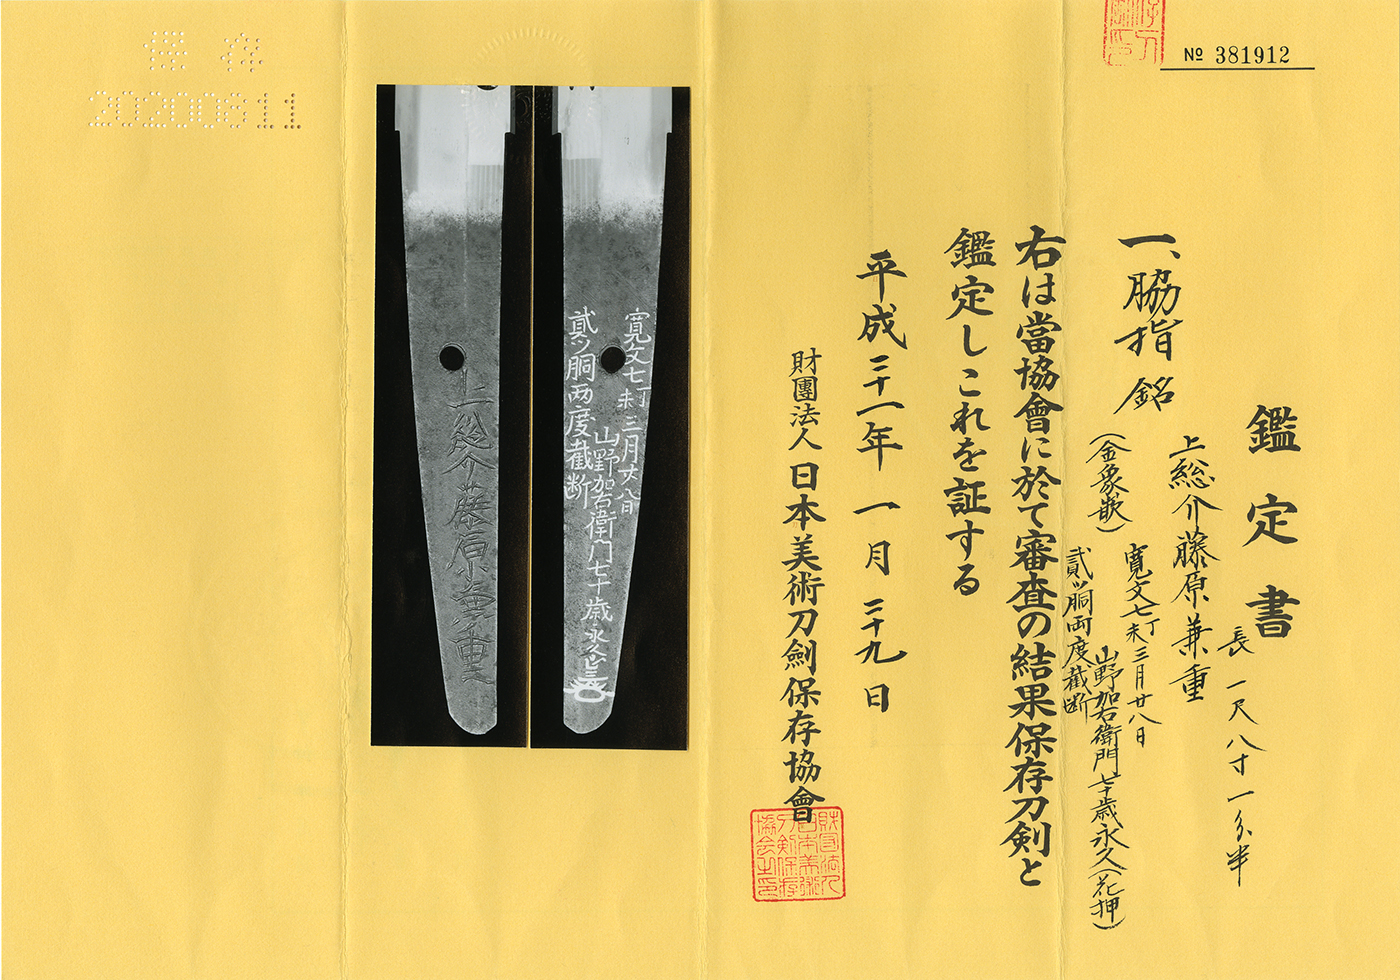 No 381912
鑑定書
一、脇指 銘
長 一尺八寸一分半
上総介藤原兼重
(金象嵌)
寛文七丁未三月廿八日
山野加右衛門七十歳永久(花押)
貮ッ胴両度截断
右は當協會に於て審査の結果保存刀剣と
鑑定しこれを証する
平成三十一年一月二十九日
財團法人日本美術刀劍保存協會
財団法人日本美術刀剣保存協会之印
寛文七丁未三月廿八日
山野加右衛門七十歳永久
貮ッ胴両度截断
上総介藤原兼重
保存
20200811